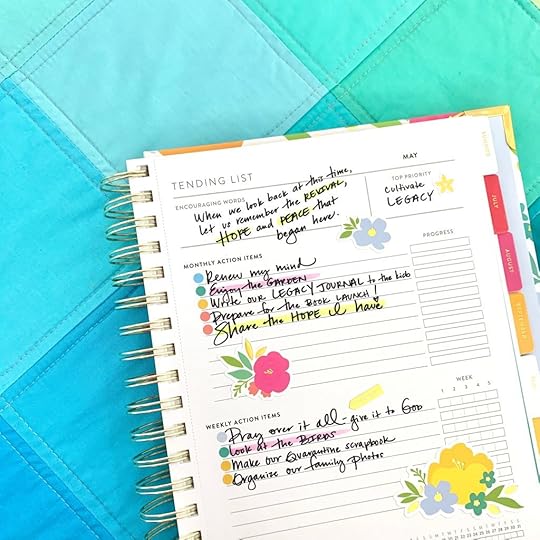 MAY
TENDING LIST
ENCOURAGING WORDS
When we look back at this time,
let us remember the REVIVAL,
HOPE and PEACE that
began here.
TOP PRIORITY
Cultivate
LEGACY
MONTHLY ACTION ITEMS
PROGRESS
Renew my mind
Enjoy the GARDEN
Write our LEGACY JOURNAL to the kids
Prepare for the BOOK LAUNCH!
Share the HOPE I have
WEEKLY ACTION ITEMS
WEEK
1 2 3 4 5
Pray over it all - give it to God
Look at the BIRDS
Make our Quarantine scrapbook
Organize our family photos
JULY
AUGUST
SEPTEMBER